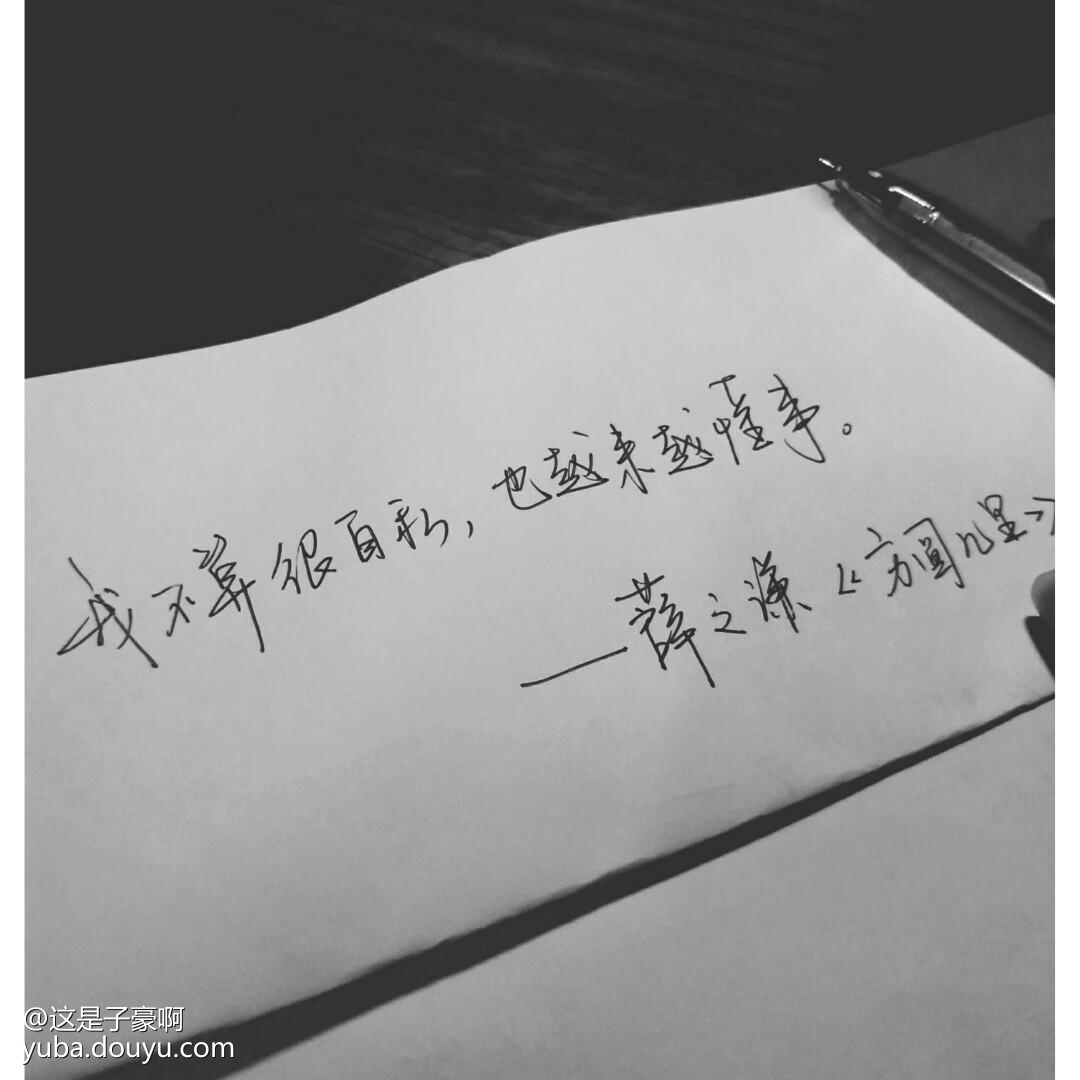 我不算很自私，也越来越懂事。
——薛之谦《方圆几里》
@这是子豪啊
yuba.douyu.com